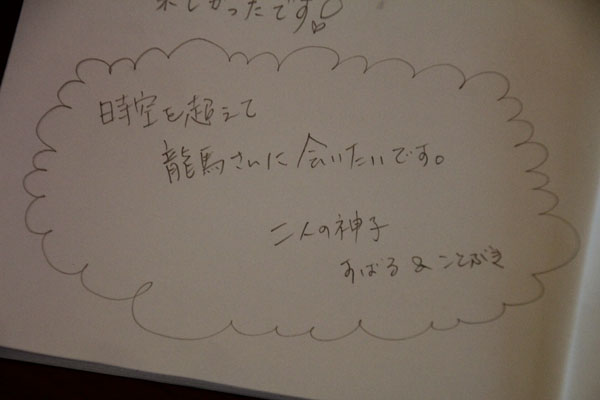 楽しかったです♡
時空を超えて
龍馬さんに会いたいです。
二人の神子
すばる & ことぶき